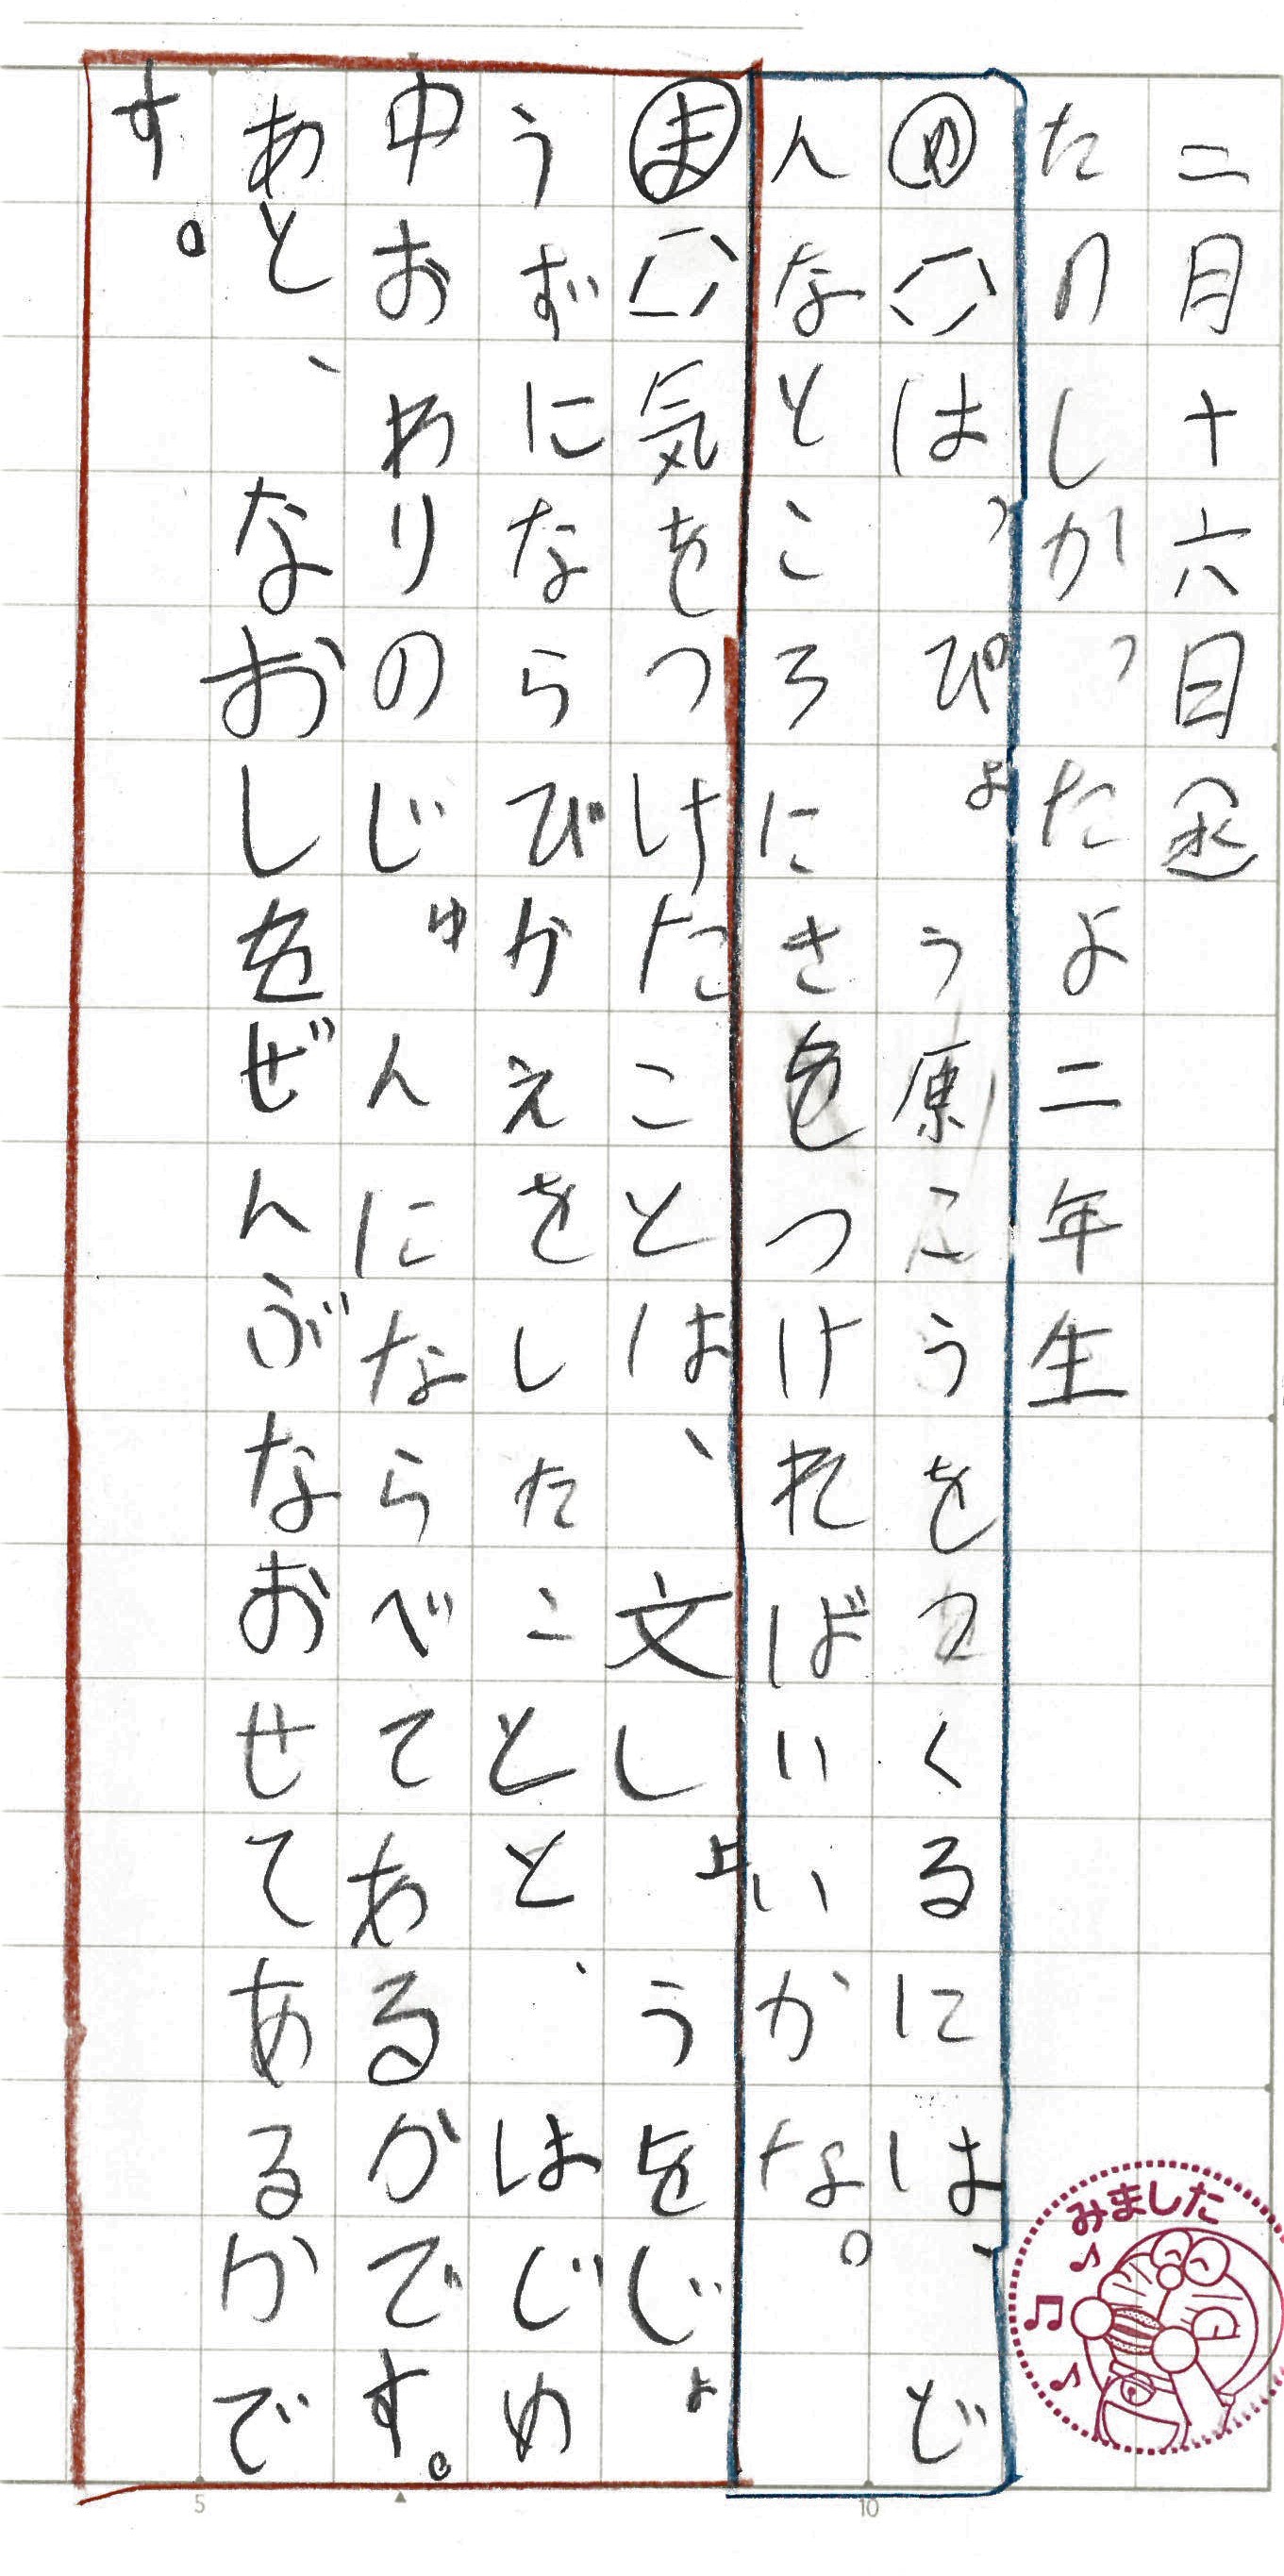 二月十六日㊌
たのしかったよ二年生
㋱はっぴょう原こうをつくるには、ど
んなところにきをつければいいかな。
㋮気をつけたことは、文しょうをじょ
うずにならびかえをしたことと、はじめ
中おわりのじゅんにならべてあるかです。
あと、なおしをぜんぶなおせてあるかで
す。
みました
10
5